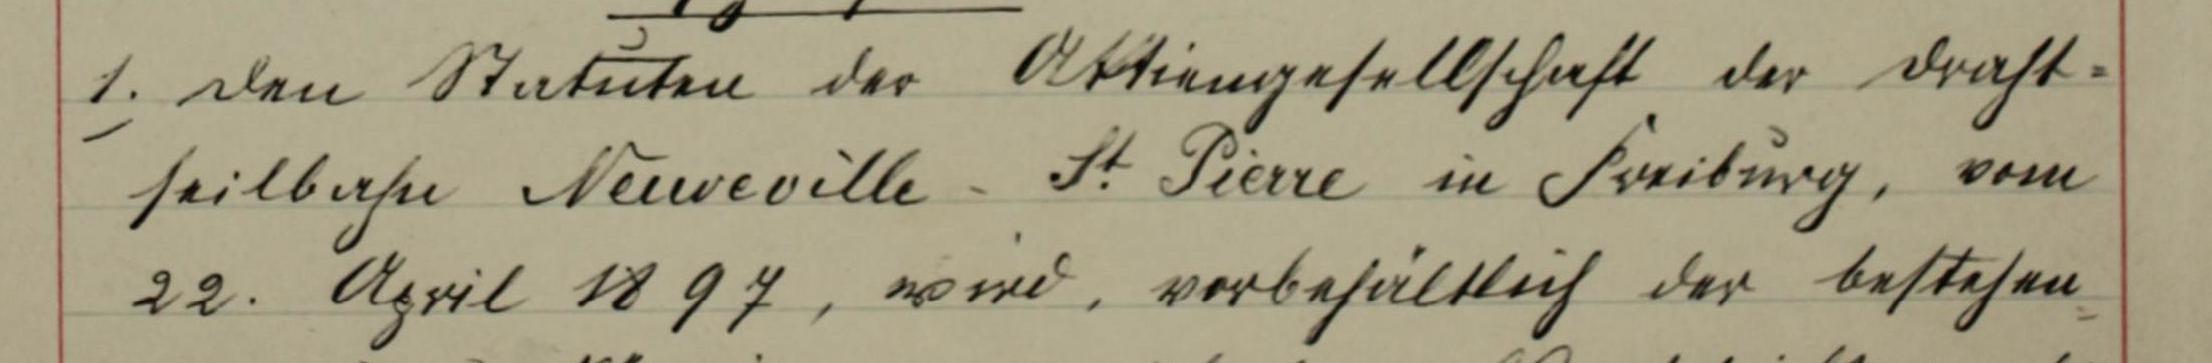 1. Den Statuten der Aktiengesellschaft der Draht=
seilbahn Neuveville - St. Pierre in Freiburg, vom
22. April 1897, wird, vorbehältlich der bestehen=